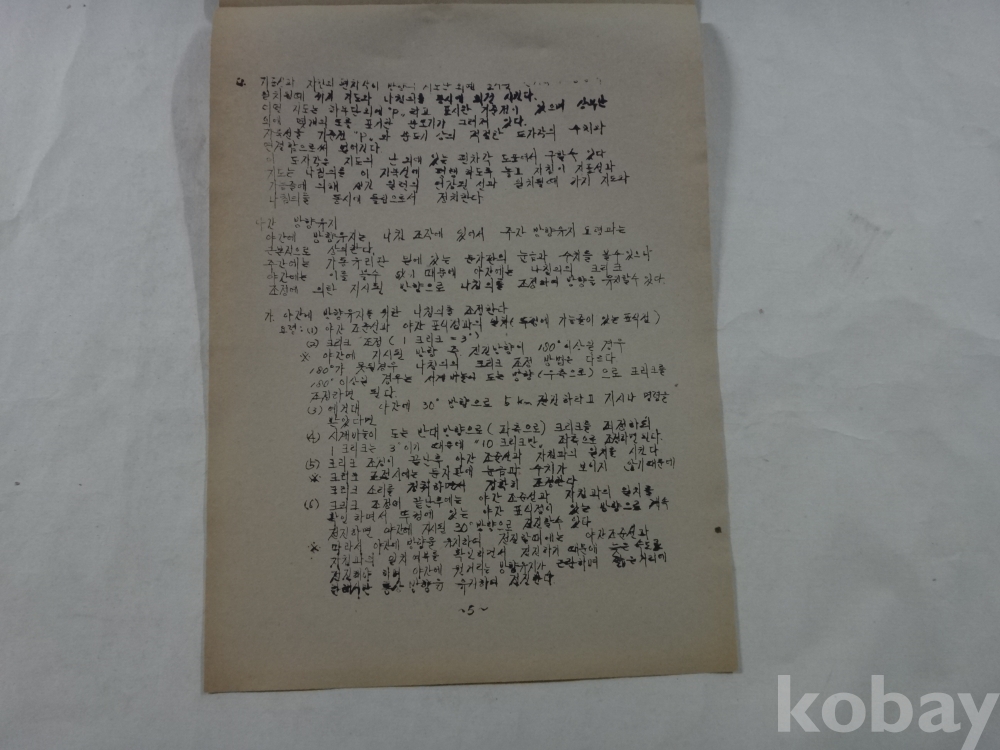 일치될때 까지 지도와 나침의를 동시에 회전 시킨다.
어떤 지도는 하부단외에 "P"라고 표시한 기준점이 있으며 상부단
외에 몇개의 도를 표시한 분도기가 그려져 있다.
기준점 "P"와 분도기 상의 적절한 도자각의 수치와
연결함으로써 얻어진다
이 도자각은 지도의 난외에 있는 편차각 도표에서 구할수 있다
지도는 나침의를 이 자북선에 평행 하도록 놓고 자침이 기준선과
선과 일치될때 까지 지도와
나침의를 동시에 돌림으로서 정치한다
야간 방향유지
야간에 방향유지는 나침 조작에 있어서 주간 방향유지 요령과는
근본적으로 상이하다.
주간에는 가동유리판 밑에 있는 문자판의 눈금과 수치를 볼수 있으나
야간에는 이를 볼수 없기 때문에 야간에는 나침의의 크리크
조정에 의한 지시된 방향으로 나침의를 조정하여 방향을 유지할수 있다.
가. 야간에 방향유지를 위한 나침의를 조정한다
요령: (1) 야간 조준선과 야간 표식점과의 일치 (뚜껑에 가늠줄이 있는 표식점)
(2) 크리크 조정 (1 크리크 = 3°)
※ 야간에 지시된 방향 즉 진진방향이 180° 이상될 경우
180°가 못될경우 나침의의 크리크 조정 방법은 다르다
180° 이상될 경우는 시계바늘이 도는 방향 (우측으로) 으로 크리크를
조정하면 된다.
(3) 예컨대 야간에 30° 방향으로 5 km 전진하라고 지시나 명령을
받았다면
(4) 시계바늘이 도는 반대방향으로 (좌측으로) 크리크를 조정하되
1 크리크는 3°이기 때문에 "10 크리크만" 좌측으로 조정하면 된다.
(5) 크리크 조정이 끝난후 야간 조준선과 자침과의 일치를 시킨다
※ 크리크 조정시에는 문자판에 눈금과 수치가 보이지 않기때문에
크리크 소리를 청취하면서 정확히 조정한다
(6) 크리크 조정이 끝난후에는 야간 조준선과 자침과의 일치를
확인 하면서 뚜껑에 있는 야간 표식점이 있는 방향으로 계속
전진하면 야간에 지시된 30° 방향으로 전진할수 있다
※ 따라서 야간에 방향을 유지하며 전진할때에는 야간조준선과
자침과의 일치여부를 확인하면서 전진하기 때문에 늦은 속도로
전진해야 하며 야간에 원거리는 방향유지가 곤란하며 짧은거리에
방향을 유지하며 전진한다
~5~
kobay